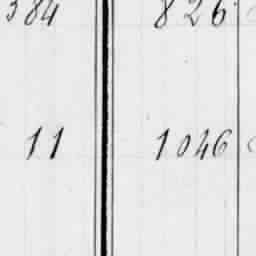 384 826
11 1046